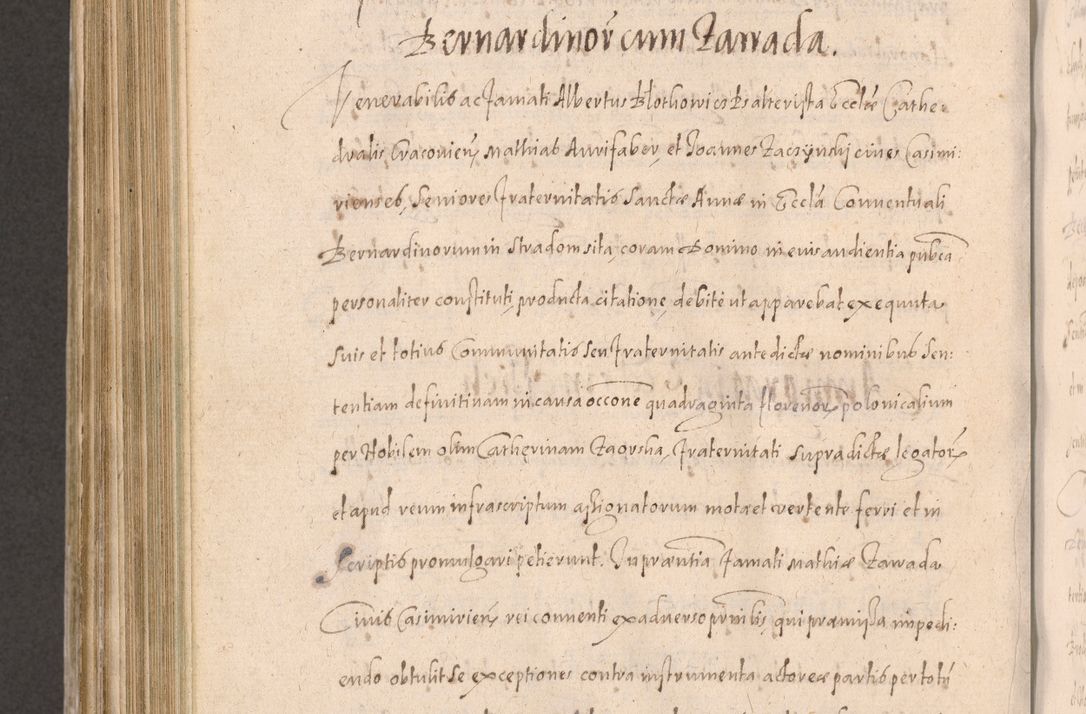 Bernardinor̃ cum Zawada.
Venerabilis ac famati Albertus Blothowicz Psalterista Eccłæ Cathe-
dralis Cracovieñ, Mathias Aurifaber, et Joannes Zaczynskj cives Casimi:
rienses, Seniores fraternitatis Sanctæ Annæ in Eccłã Conventuali
Bernardinorum in Stradom sita, coram Domino in eius audientia pubca
personaliter constituti, producta citatione, debitè ut apparebat exequuta
suis et totius Communitatis seu fraternitatis antedictæ nominibus Sen:
tentiam definitivam in causa occõne quadraginta florenor̃ polonicalium
per Nobilem olim Catherinam Zaorska, fraternitati supradictæ legator̃
et apud reum infrascriptum assignatorum mota et vertente ferri et in
Scriptis promulgari petierunt. In præntia famati Mathiæ Zawada
Civis Casimirieñ, rei conventi ex adverso prñibłis, qui præmissa impedi:
endo obtulit se exceptiones contra instrumenta actoreæ partis per totũ